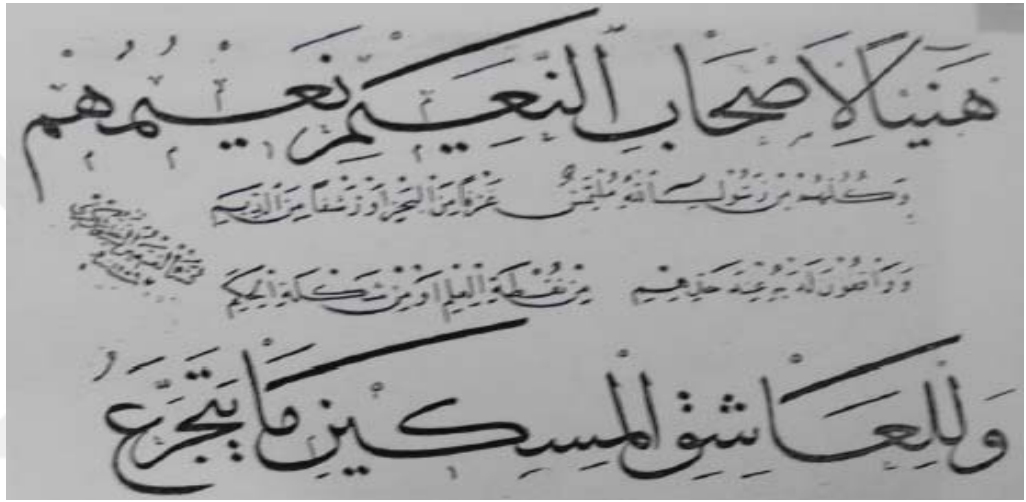 هَنِيئًا لِأَصْحَابِ النَّعِيمِ نَعِيمُهُمْ
وَكُلُّهُمْ مِنْ رَسُولِ اللهِ مُلْتَمِسٌ غَرْفًا مِنَ الْبَحْرِ أَوْ رَشْفًا مِنَ الدِّيَمِ
وَوَاقِفُونَ لَدَيْهِ عِنْدَ حَدِّهِمِ مِنْ نُقْطَةِ الْعِلْمِ أَوْ مِنْ شَكْلَةِ الْحِكَمِ
وَلِلْعَاشِقِ الْمِسْكِينِ مَا يَتَجَرَّعُ